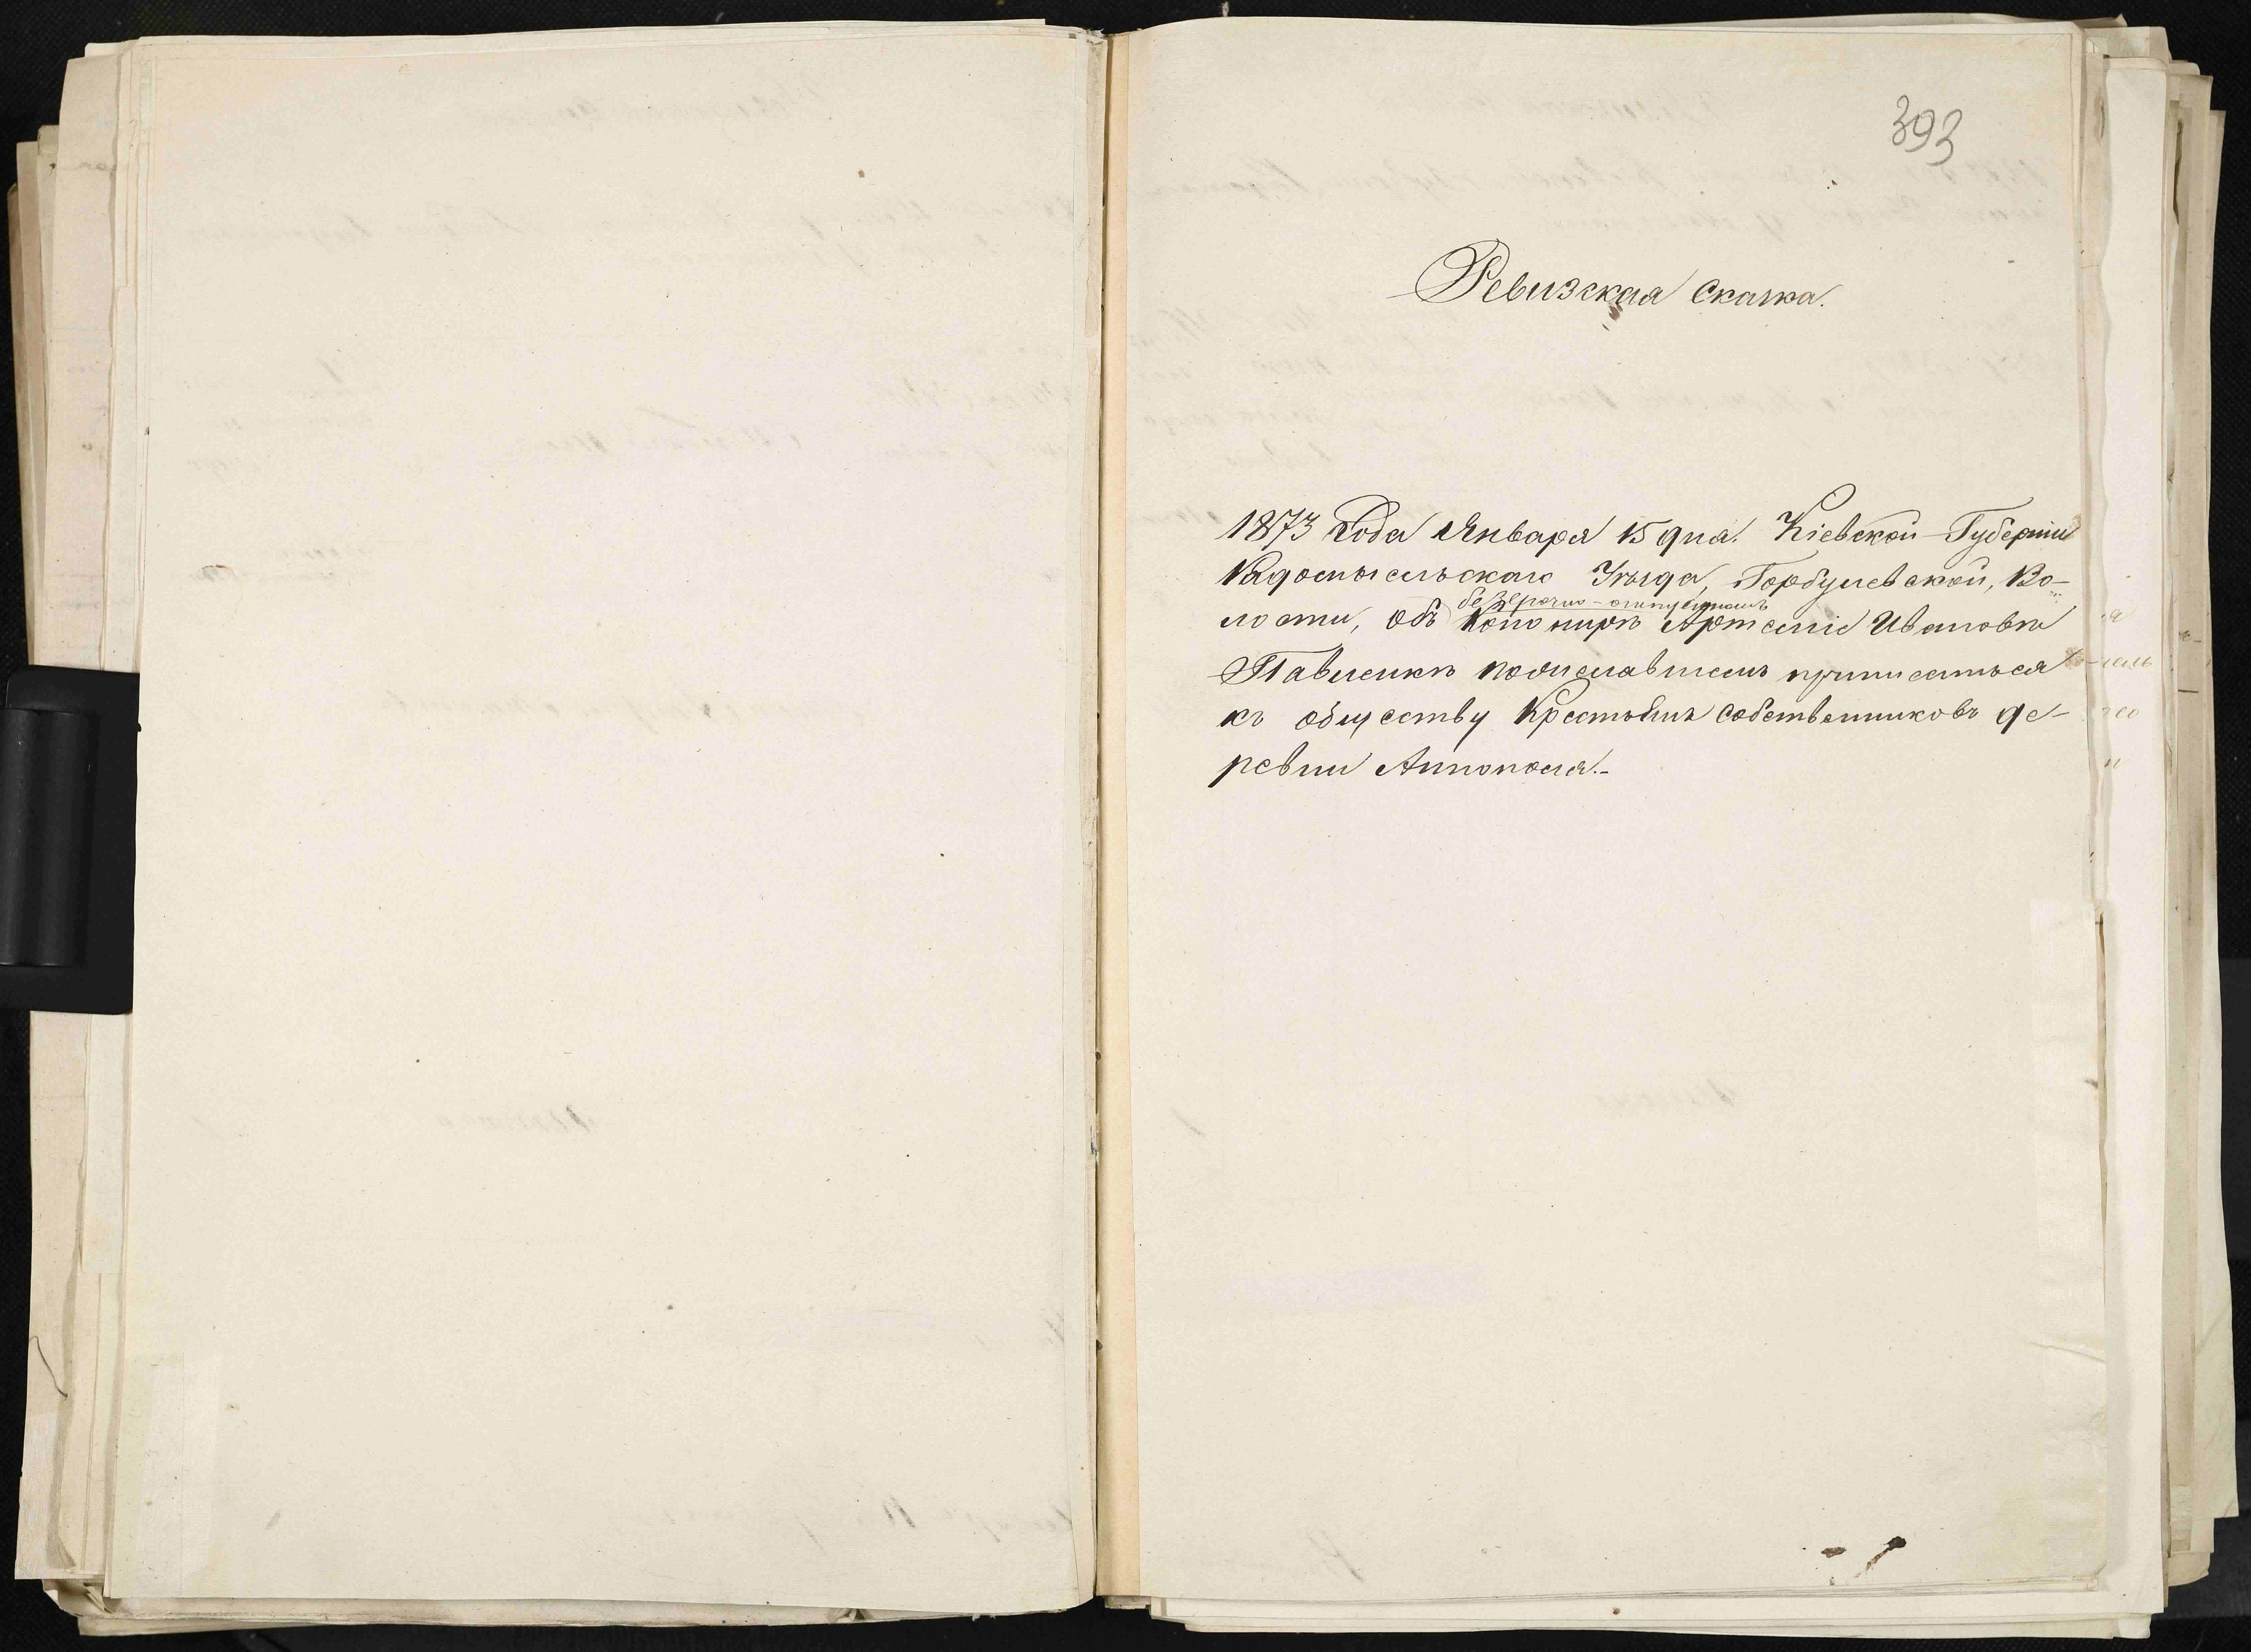 393
Ревизская Сказка.
1873 Года Января 15 дня. Кіевской Губерніи
Радомысльскаго Уѣзда, Горбулевской, Во-
безсрочно-отпускномъ
лости, объ Канонирѣ Артеміе Ивановѣ
Павленкѣ пожелавшемъ приписаться
къ обществу Крестьянъ Собственниковъ де-
ревни Аннополя.-